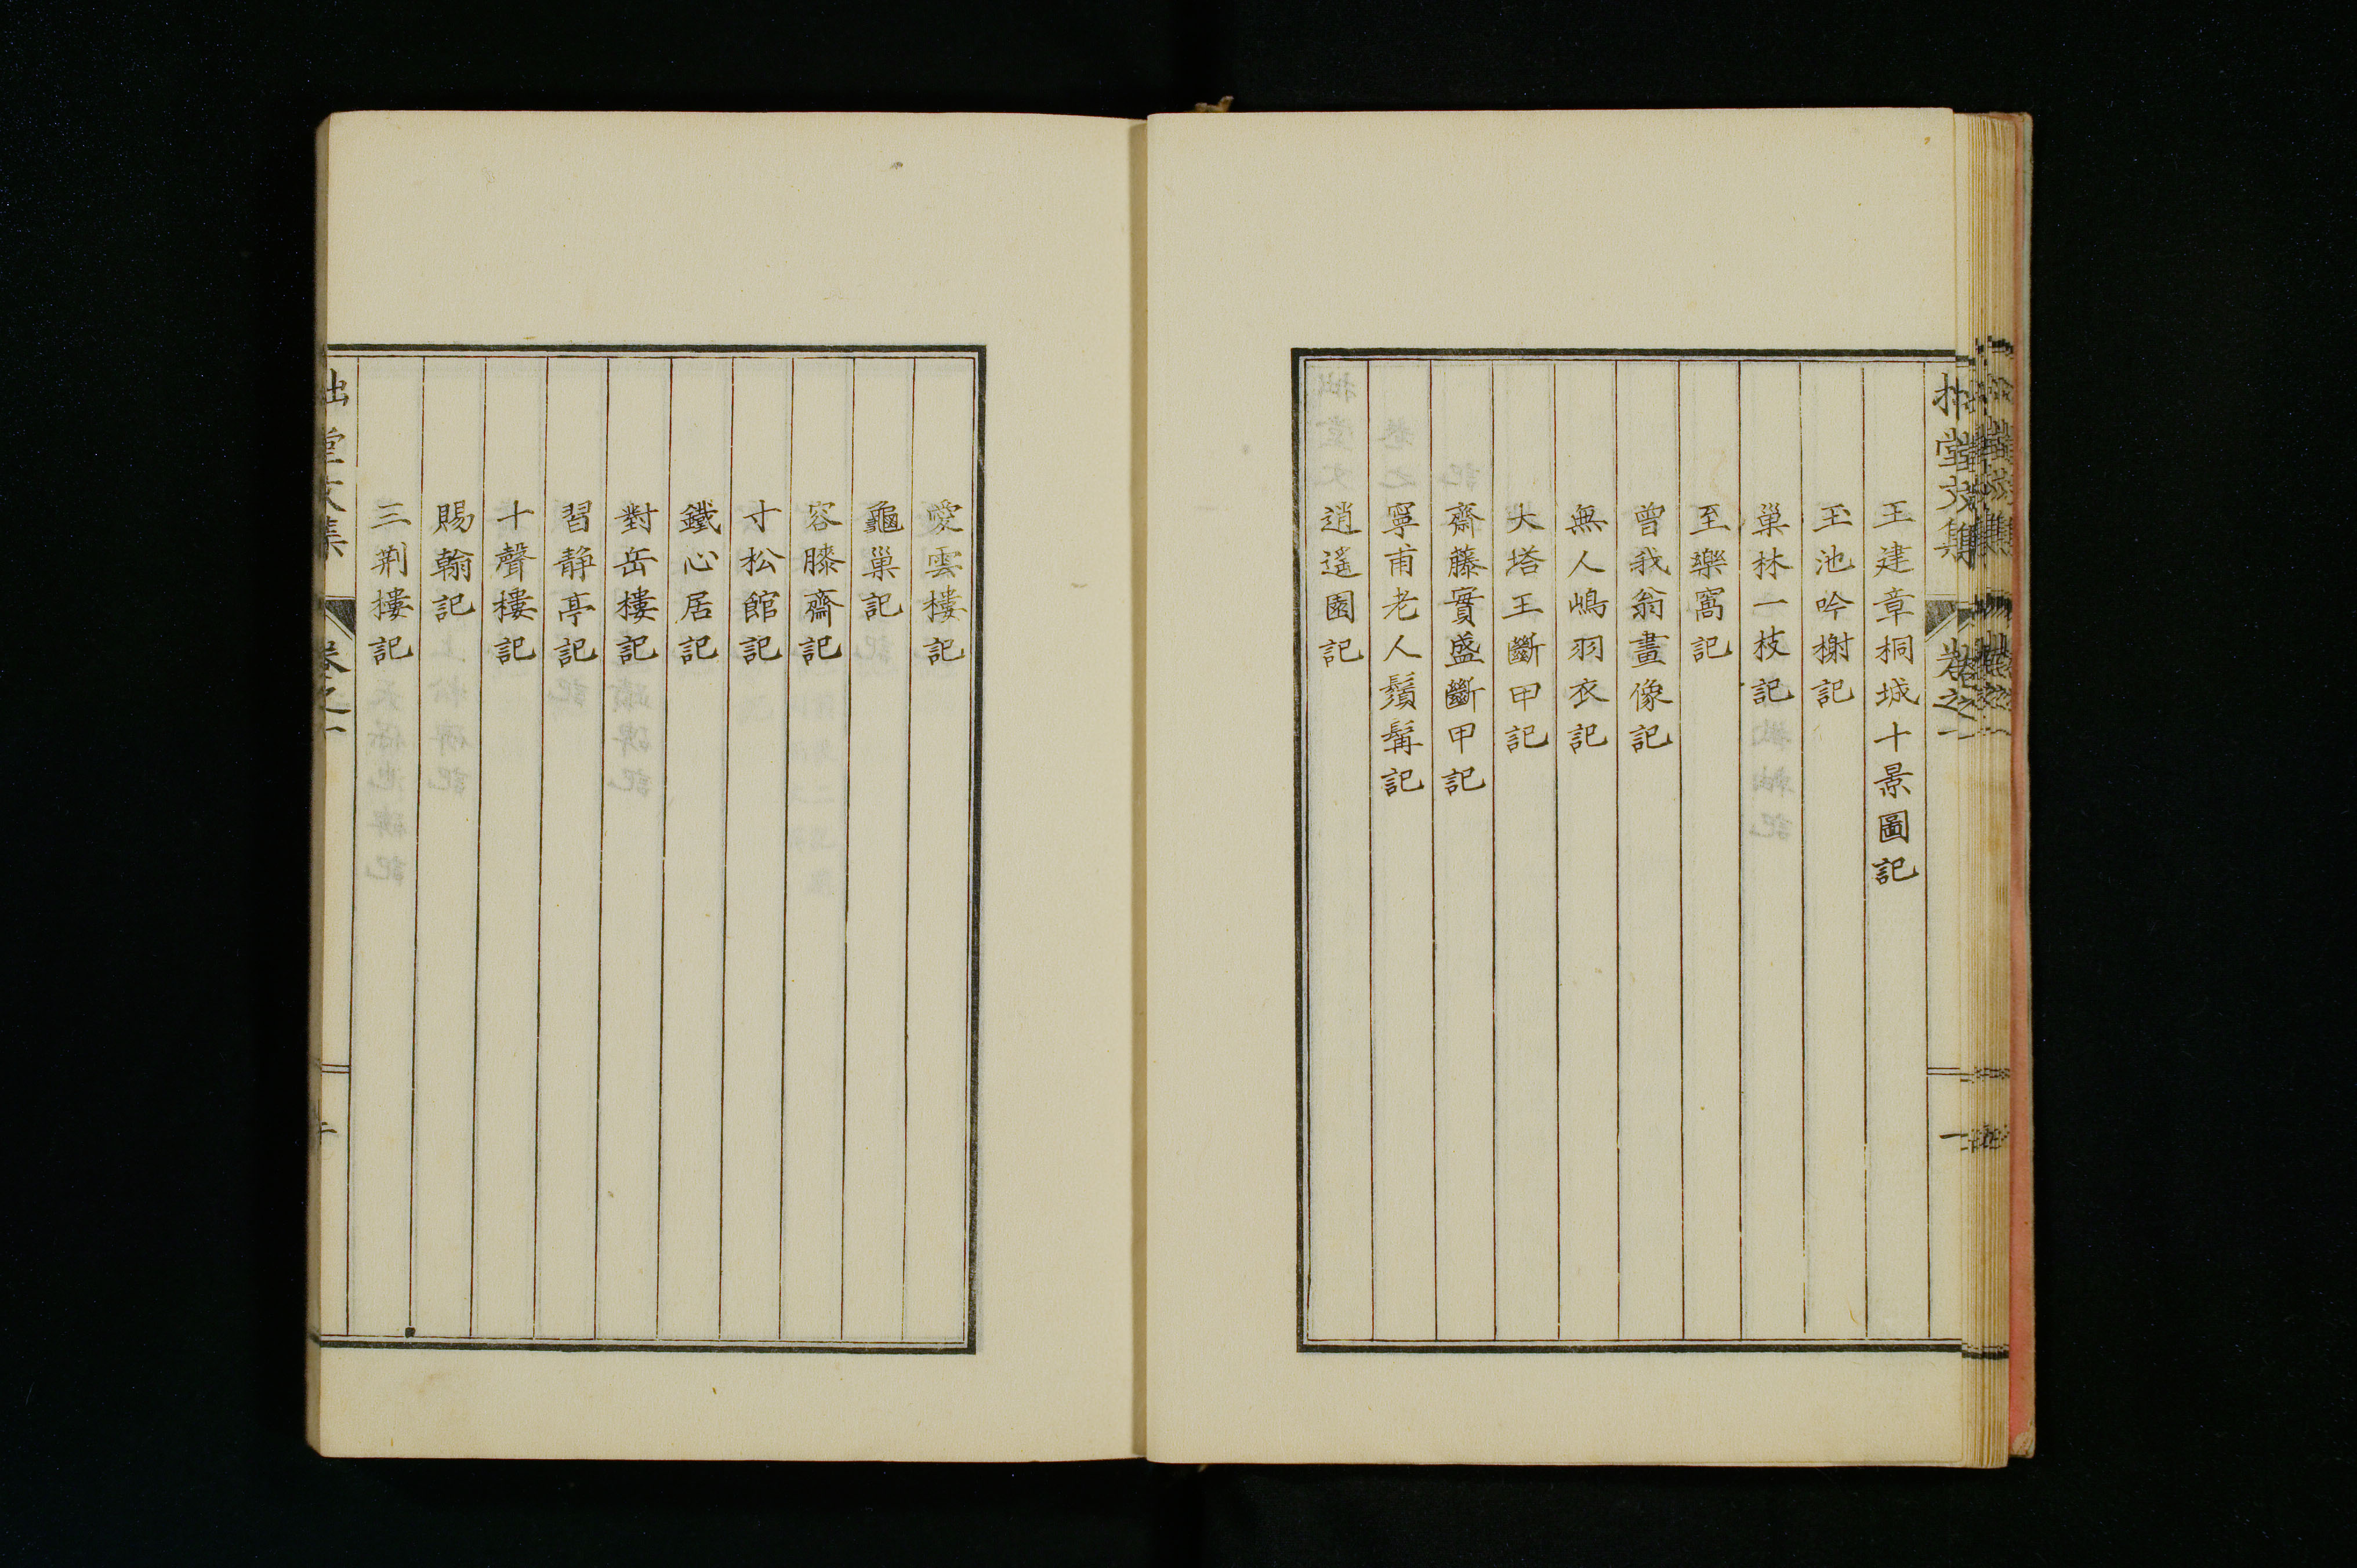 王建章桐城十景圖記
玉池吟榭記
巢林一枝記
至樂窩記
曾我翁畫像記
無人嶋羽衣記
大塔王斷甲記
齋藤實盛斷甲記
寧甫老人鬚髯記
逍遙園記
愛雲樓記
龜巢記
容膝齋記
寸松館記
鐵心居記
對岳樓記
習静亭記
十聲樓記
賜翰記
三荆樓記
拙堂文集 卷之一